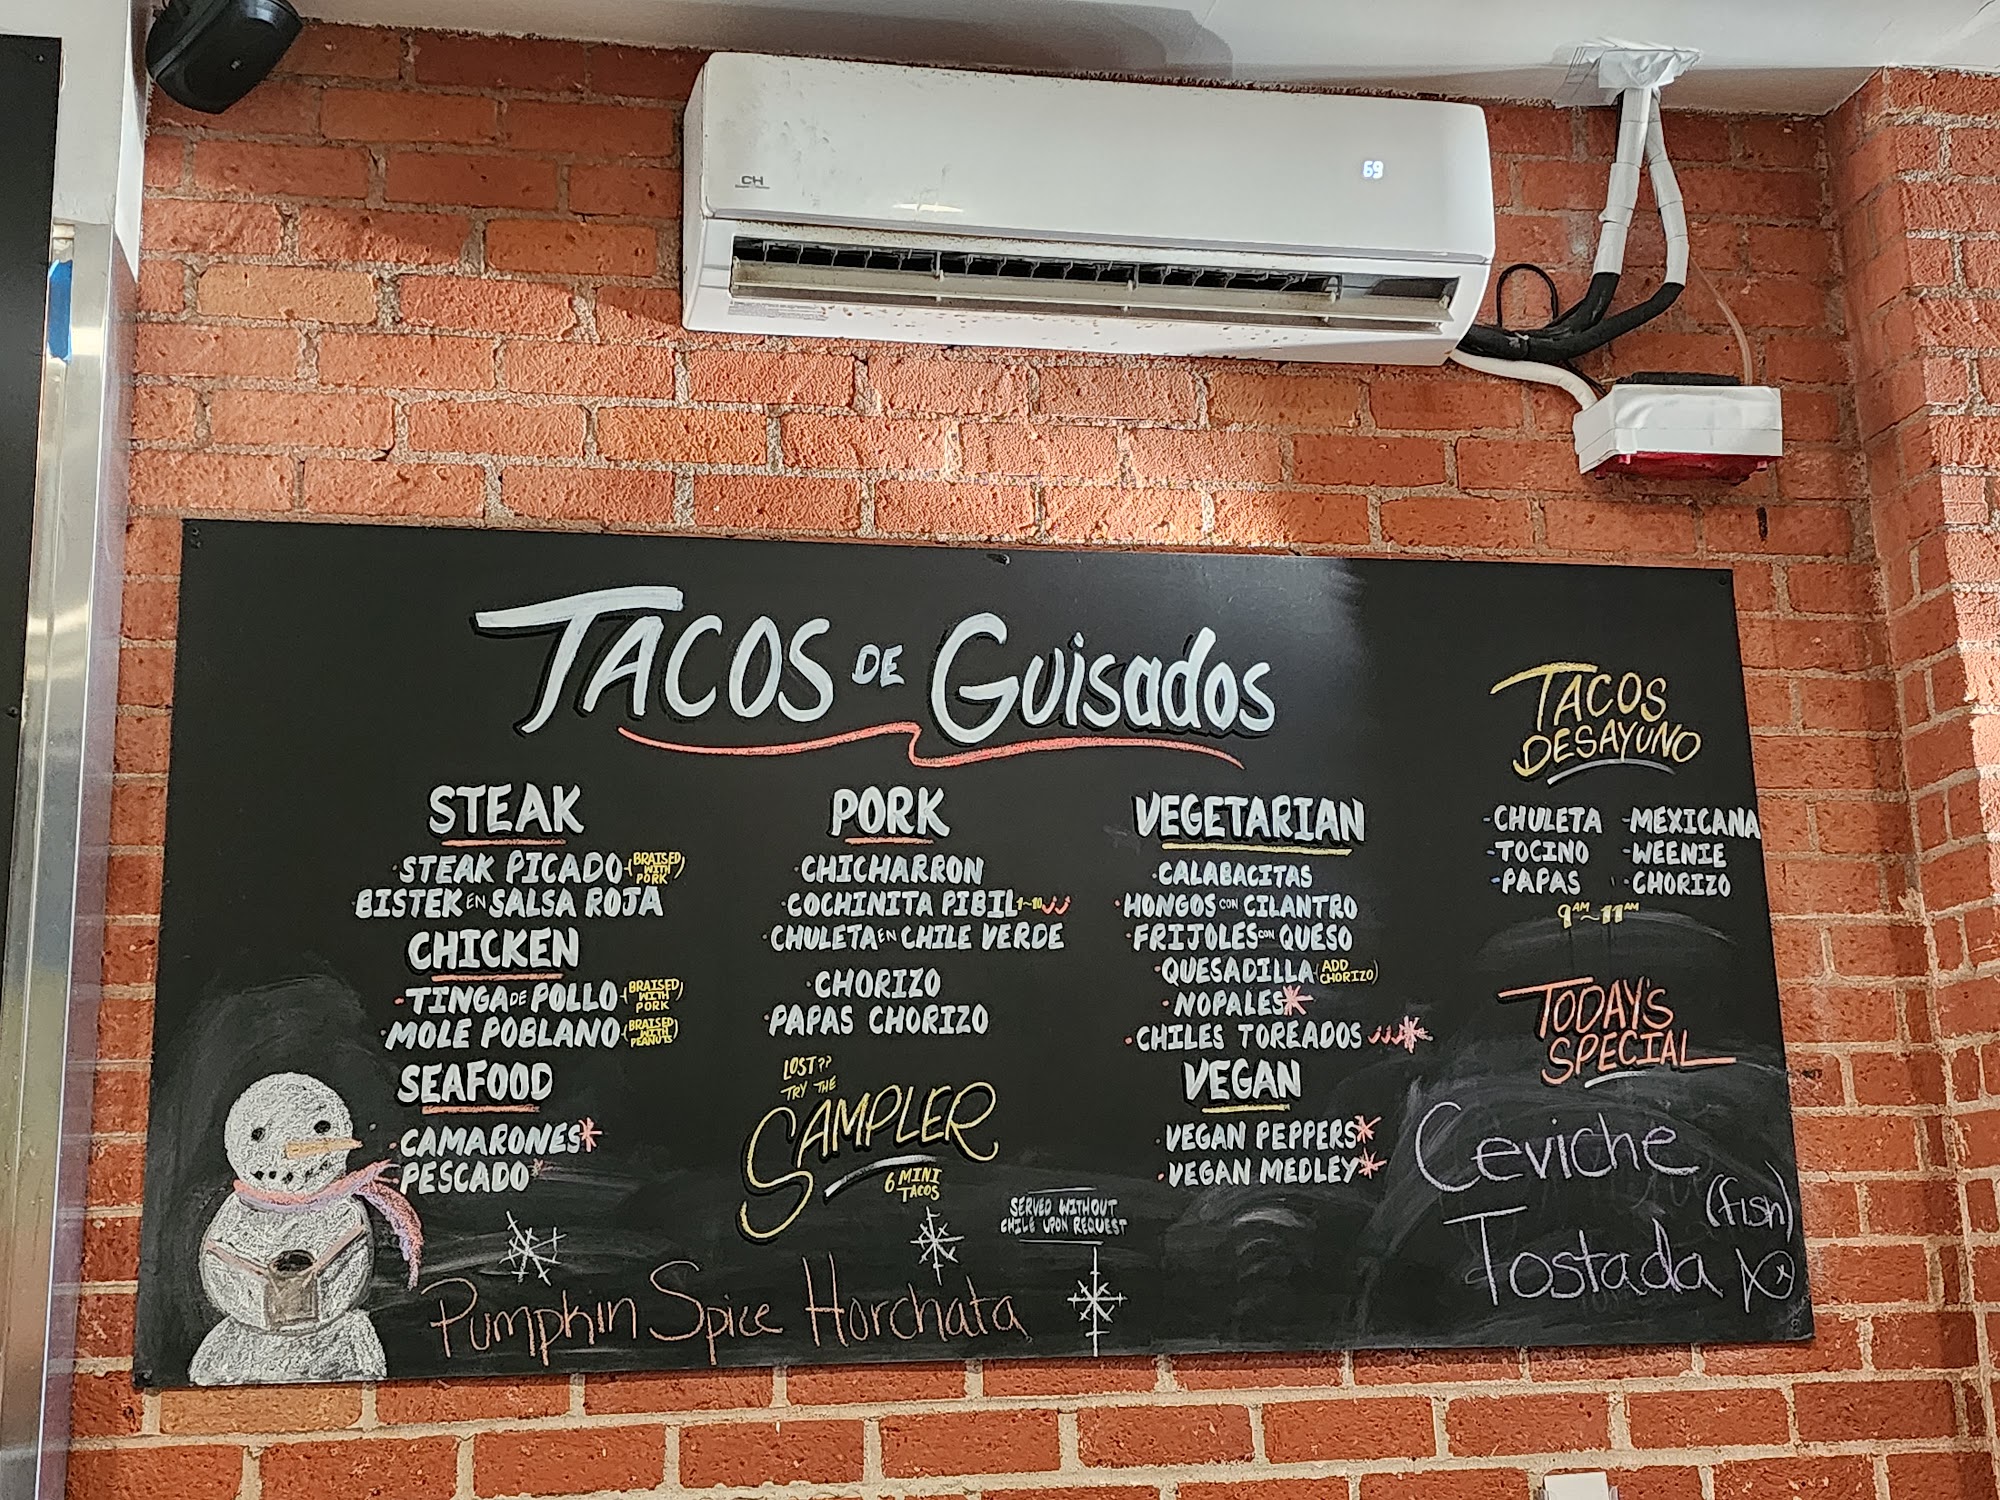 CH
69
TACOS DE GUISADOS
STEAK
·STEAK PICADO (BRAISED WITH PORK)
·BISTEK EN SALSA ROJA
CHICKEN
·TINGA DE POLLO (BRAISED WITH PORK)
·MOLE POBLANO (BRAISED WITH PEANUTS)
SEAFOOD
·CAMARONES*
·PESCADO*
PORK
·CHICHARRON
·COCHINITA PIBIL 1~10
·CHULETA EN CHILE VERDE
·CHORIZO
·PAPAS CHORIZO
LOST??
TRY THE
SAMPLER
6 MINI
TACOS
VEGETARIAN
·CALABACITAS
·HONGOS CON CILANTRO
·FRIJOLES CON QUESO
·QUESADILLA (ADD CHORIZO)
·NOPALES*
·CHILES TOREADOS *
VEGAN
·VEGAN PEPPERS*
·VEGAN MEDLEY*
SERVED WITHOUT
CHILE UPON REQUEST
TACOS
DESAYUNO
-CHULETA -MEXICANA
-TOCINO -WEENIE
-PAPAS -CHORIZO
9AM~11AM
TODAY'S
SPECIAL
Ceviche
(fish)
Tostada
Pumpkin Spice Horchata